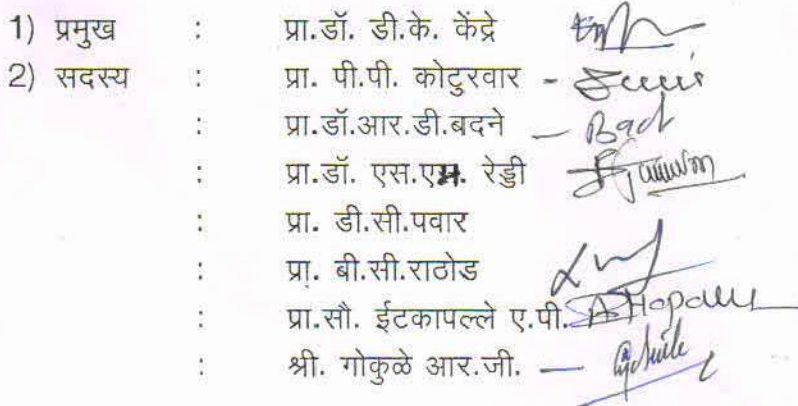 1) प्रमुख : प्रा.डॉ. डी.के. केंद्रे
2) सदस्य : प्रा. पी.पी. कोटुरवार -
: प्रा.डॉ.आर.डी.बदने —
: प्रा.डॉ. एस.एम. रेड्डी
: प्रा. डी.सी.पवार
: प्रा. बी.सी.राठोड
: प्रा.सौ. ईटकापल्ले ए.पी.
: श्री. गोकुळे आर.जी. —